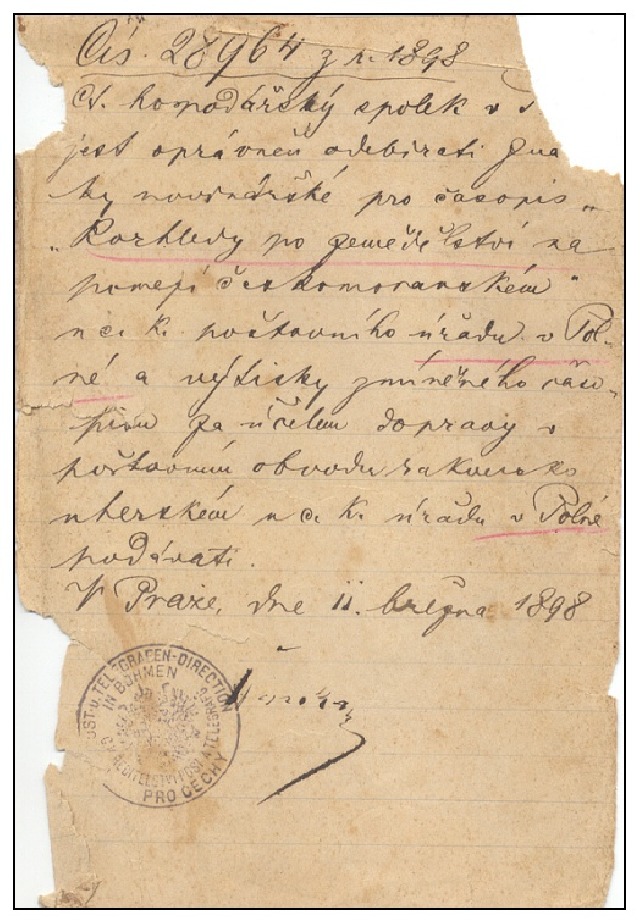 Čís. 28964 z r. 1898
Sl. hospodářský spolek v
jest oprávněn odebírati zna
ky novinářské pro časopis „
„Rozhledy po zemědělství na
pomezí českomoravském"
u c. k. poštovního úřadu v Pol-
né a výtisky zmíněného časo-
pisu za účelem dopravy v
poštovním obvodu rakousko
uherském u c. k. úřadu v Polné
podávati.
V Praze, dne 11. března 1898
POST- U. TELEGRAFEN-DIRECTION
IN BÖHMEN
C. K. ŘEDITELSTVÍ POŠT A TELEGRAFŮ
PRO ČECHY